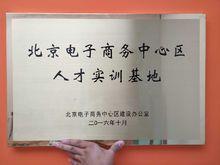 北京电子商务中心区
人才实训基地
北京电子商务中心区建设办公室
二〇一六年十月